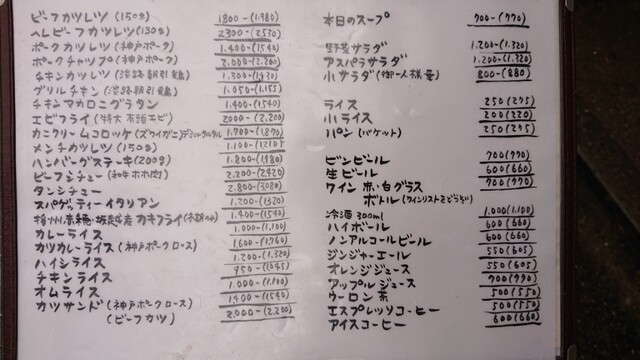 ビーフカツレツ (150g) 1800-(1.980)
ヘレビーフカツレツ(130g) 2300-(2530)
ポークカツレツ (神戸ポーク) 1.400-(1540)
ポークチャップ (神戸ポーク) 2.000-(2.200)
チキンカツレツ (淡路朝引鶏) 1.300-(1430)
グリルチキン (淡路朝引鶏) 1.050-(1.155)
チキンマカロニグラタン 1.400-(1.540)
エビフライ (特大有頭エビ) 2000-(2.200)
カニクリームコロッケ (ズワイガニ) 1.700-(1.870)
メンチカツレツ (150g) 1.100-(1.210)
ハンバーグステーキ(200g) 1.800-(1.980)
ビーフシチュー (和牛ホホ肉) 2.200-(2.420)
タンシチュー 2.800-(3.080)
スパゲッティーイタリアン 1.200-(1.320)
カキフライ 1.400-(1540)
カレーライス 1.000-(1.100)
カツカレーライス (神戸ポークロース) 1.600-(1.760)
ハイシライス 1.200-(1.320)
チキンライス 950-(1045)
オムライス 1.000-(1.100)
カツサンド (神戸ポークロース) 1.400-(1.540)
(ビーフカツ) 2.000-(2.200)
本日のスープ 700-(770)
野菜サラダ 1.200-(1.320)
アスパラサラダ 1.200-(1.320)
小サラダ (御一人様量) 800-(880)
ライス 250(275)
小ライス 200(220)
パン (バケット) 250(275)
ビンビール 700(770)
生ビール 600(660)
ワイン 赤・白グラス 700(770)
ボトル (ワインリストをどうぞ)
冷酒 300ml 1.000(1.100)
ハイボール 600(660)
ノンアルコールビール 600(660)
ジンジャーエール 550(605)
オレンジジュース 550(605)
アップルジュース 700(770)
ウーロン茶 500(550)
エスプレッソコーヒー 500(550)
アイスコーヒー 600(660)